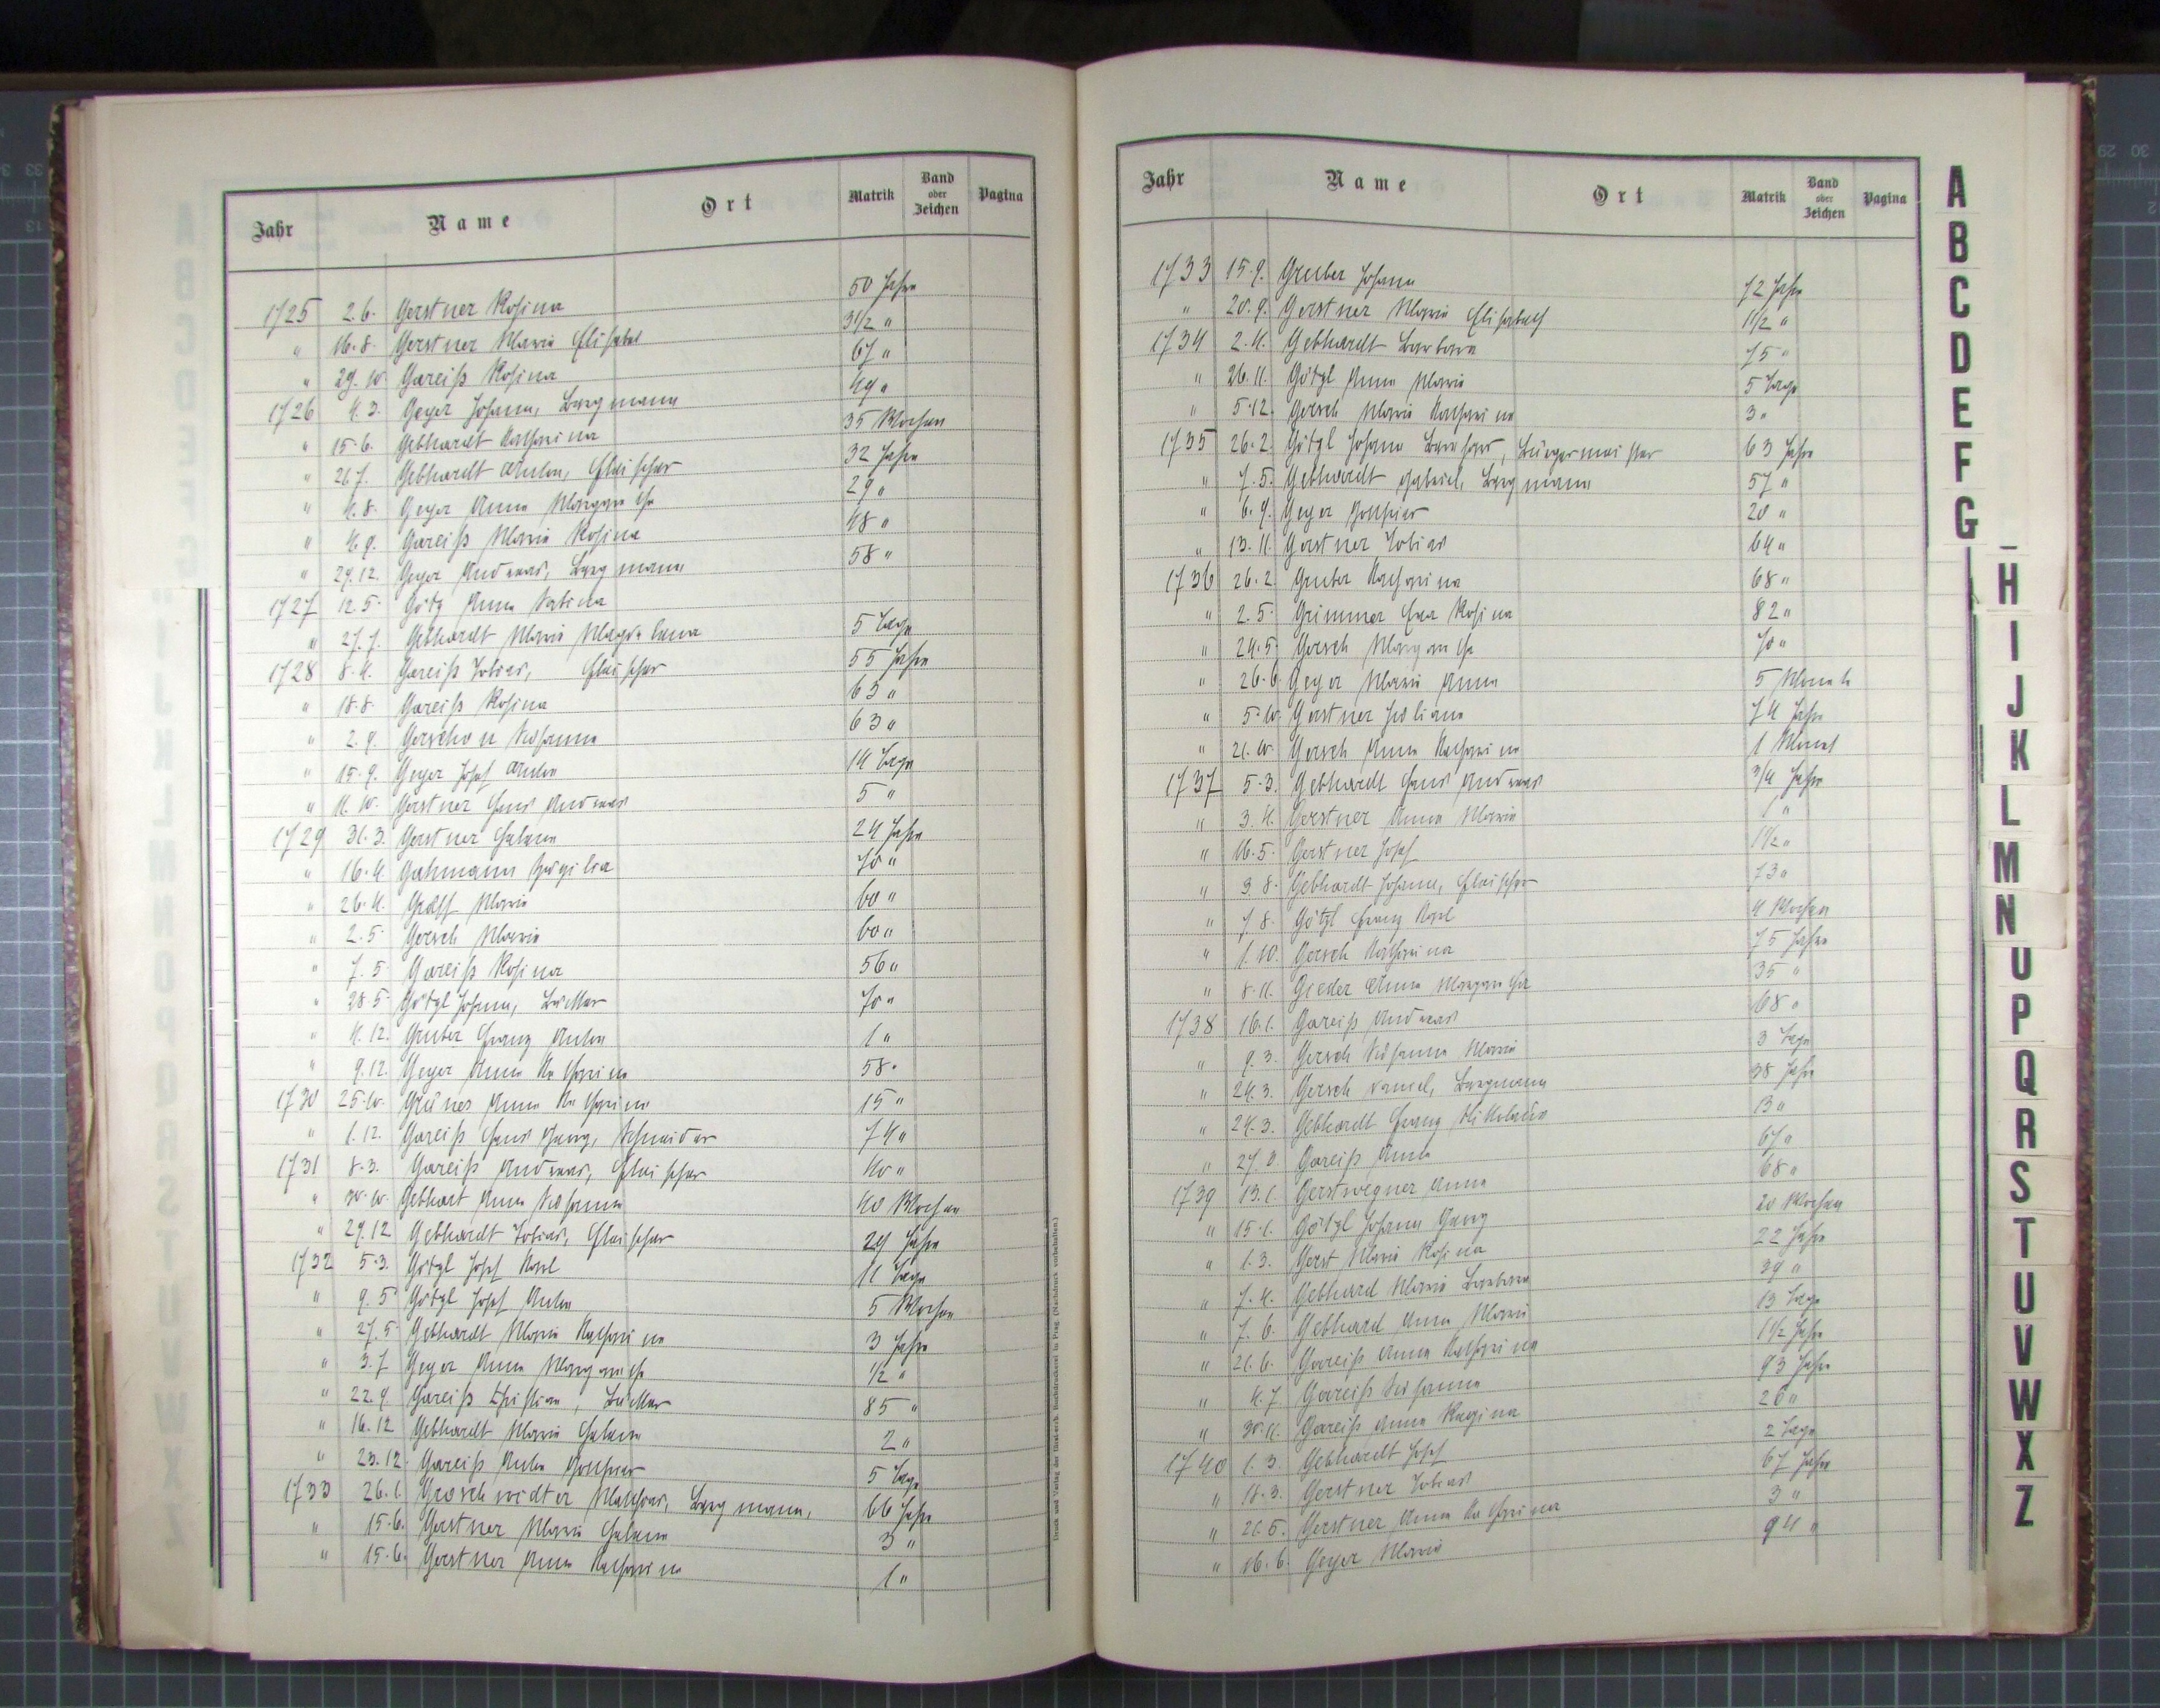 Jahr Name Ort Matrik Band oder Zeichen Pagina
1725 2.6. Gerstner Rosina 50 Jahre
" 16.8. Gerstner Maria Elisabet 3 1/2 "
" 29.10. Gareiß Rosina 67 "
1726 4.3. Geyer Johann, Bergmann 49 "
" 15.6. Gebhardt Katharina 35 Wochen
" 26.7. Gebhardt Anton, Fleischer 32 Jahre
" 4.8. Geyer Anna Margarethe 29 "
" 4.9. Gareiß Maria Rosina 48 "
" 29.12. Geyer Andreas, Bergmann 58 "
1727 12.5. Götz Anna Sabina
" 27.7. Gebhardt Maria Magdalena 5 Tage
1728 8.4. Gareiß Tobias, Fleischer 55 Jahre
" 18.8. Gareiß Rosina 63 "
" 2.9. Susanna 63 "
" 15.9. Geyer Josef Anton 14 Tage
" 11.10. Gerstner Hans Andreas 5 "
1729 31.3. Gerstner Helena 24 Jahre
" 16.4. Gahmann 70 "
" 26.4. Maria 60 "
" 2.5. Gersch Maria 60 "
" 7.5. Gareiß Rosina 56 "
" 28.5. Götzl Johann, 70 "
" 4.12. Gruber Franz Anton 1 "
" 9.12. Geyer Anna Katharina 58 "
1730 25.10. Grüner Anna Katharina 15 "
" 1.12. Gareiß Hans Georg, Schneider 74 "
1731 8.3. Gareiß Andreas, Fleischer 40 "
" 30.10. Gebhart Anna Susanna 40 Wochen
" 29.12. Gebhardt Tobias, Fleischer 29 Jahre
1732 5.3. Götzl Josef Karl 11 Tage
" 9.5. Götzl Josef Anton 5 Wochen
" 27.5. Gebhardt Maria Katharina 3 Jahre
" 3.7. Geyer Anna Margarethe 1/2 "
" 22.9. Gareiß Christian, 85 "
" 16.12. Gebhardt Maria Helena 2 "
" 23.12. Gareiß Anton Balthasar 5 Tage
1733 26.1. Groschwidter Matthias, Bergmann, 66 Jahre
" 15.6. Gerstner Maria Helena 3 "
" 15.6. Gerstner Anna Katharina 1 "
Druck und Verlag der Buchdruckerei in Prag. (Nachdruck vorbehalten.)
Jahr Name Ort Matrik Band oder Zeichen Pagina
1733 15.9. Gruber Johann 72 Jahre
" 20.9. Gerstner Maria Elisabeth 1 1/2 "
1734 2.4. Gebhardt Barbara 75 "
" 26.11. Götzl Anna Maria 5 Tage
" 5.12. Gersch Maria Katharina 3 "
1735 26.2. Götzl Johann Bürgermeister 63 Jahre
" 7.5. Gebhardt Gabriel, Bergmann 57 "
" 6.9. Geyer 20 "
" 13.11. Gerstner Tobias 64 "
1736 26.2. Gruber Katharina 68 "
" 2.5. Grimmer Eva Rosina 82 "
" 24.5. Gersch Margarethe 70 "
" 26.6. Geyer Maria Anna 5 Monate
" 5.10. Gerstner Juliana 74 Jahre
" 21.10. Gersch Anna Katharina 1 Monat
1737 5.3. Gebhardt Hans Andreas 3/4 Jahre
" 3.4. Gerstner Anna Maria 1 "
" 16.5. Gerstner Josef 1 1/2 "
" 3.8. Gebhardt Johann, Fleischer 73 "
" 7.8. Götzl Franz Karl 4 Wochen
" 1.10. Gersch Katharina 75 Jahre
" 8.11. Gieder Anna Margaretha 35 "
1738 16.1. Gareiß Andreas 68 "
" 9.3. Gersch Susanna Maria 3 Tage
" 24.3. Gersch Daniel, Bergmann 38 Jahre
" 24.3. Gebhardt Franz Nikolaus 13 "
" 27.8. Gareiß 67 "
1739 13.1. Gerstwegner Anna 68 "
" 15.1. Götzl Johann Georg 20 Wochen
" 1.3. Gerst Maria Rosina 22 Jahre
" 7.4. Gebhard Maria Barbara 39 "
" 7.6. Gebhard Anna Maria 13 Tage
" 21.6. Gareiß Anna Katharina 1 1/2 Jahre
" 4.7. Gareiß Susanna 93 Jahre
" 30.11. Gareiß Anna Regina 26 "
1740 1.3. Gebhardt Josef 2 Tage
" 18.3. Gerstner Tobias 67 Jahre
" 21.5. Gerstner Anna Katharina 3 "
" 16.6. Geyer Maria 94 "
A
B
C
D
E
F
G
H
I
J
K
L
M
N
O
P
Q
R
S
T
U
V
W
X
Z